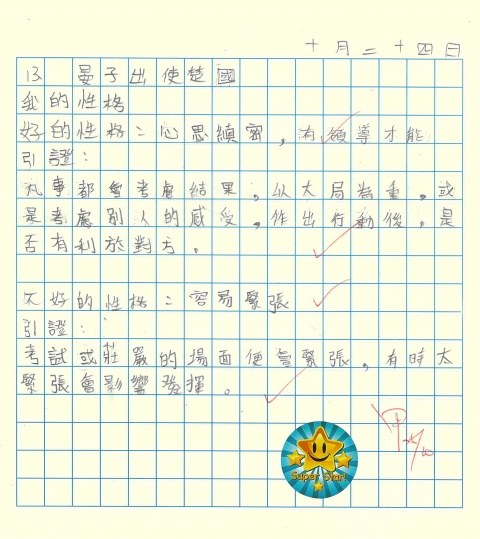 十月二十四日
13 晏子出使楚國
我的性格
好的性格：心思縝密，有領導才能
引證：
凡事都會考慮結果，以大局為重。或
是考慮別人的感受，作出行動後，是
否有利於對方。
不好的性格：容易緊張
引證：
考試或莊嚴的場面便會緊張，有時太
緊張會影響發揮。
甲
Super Star!